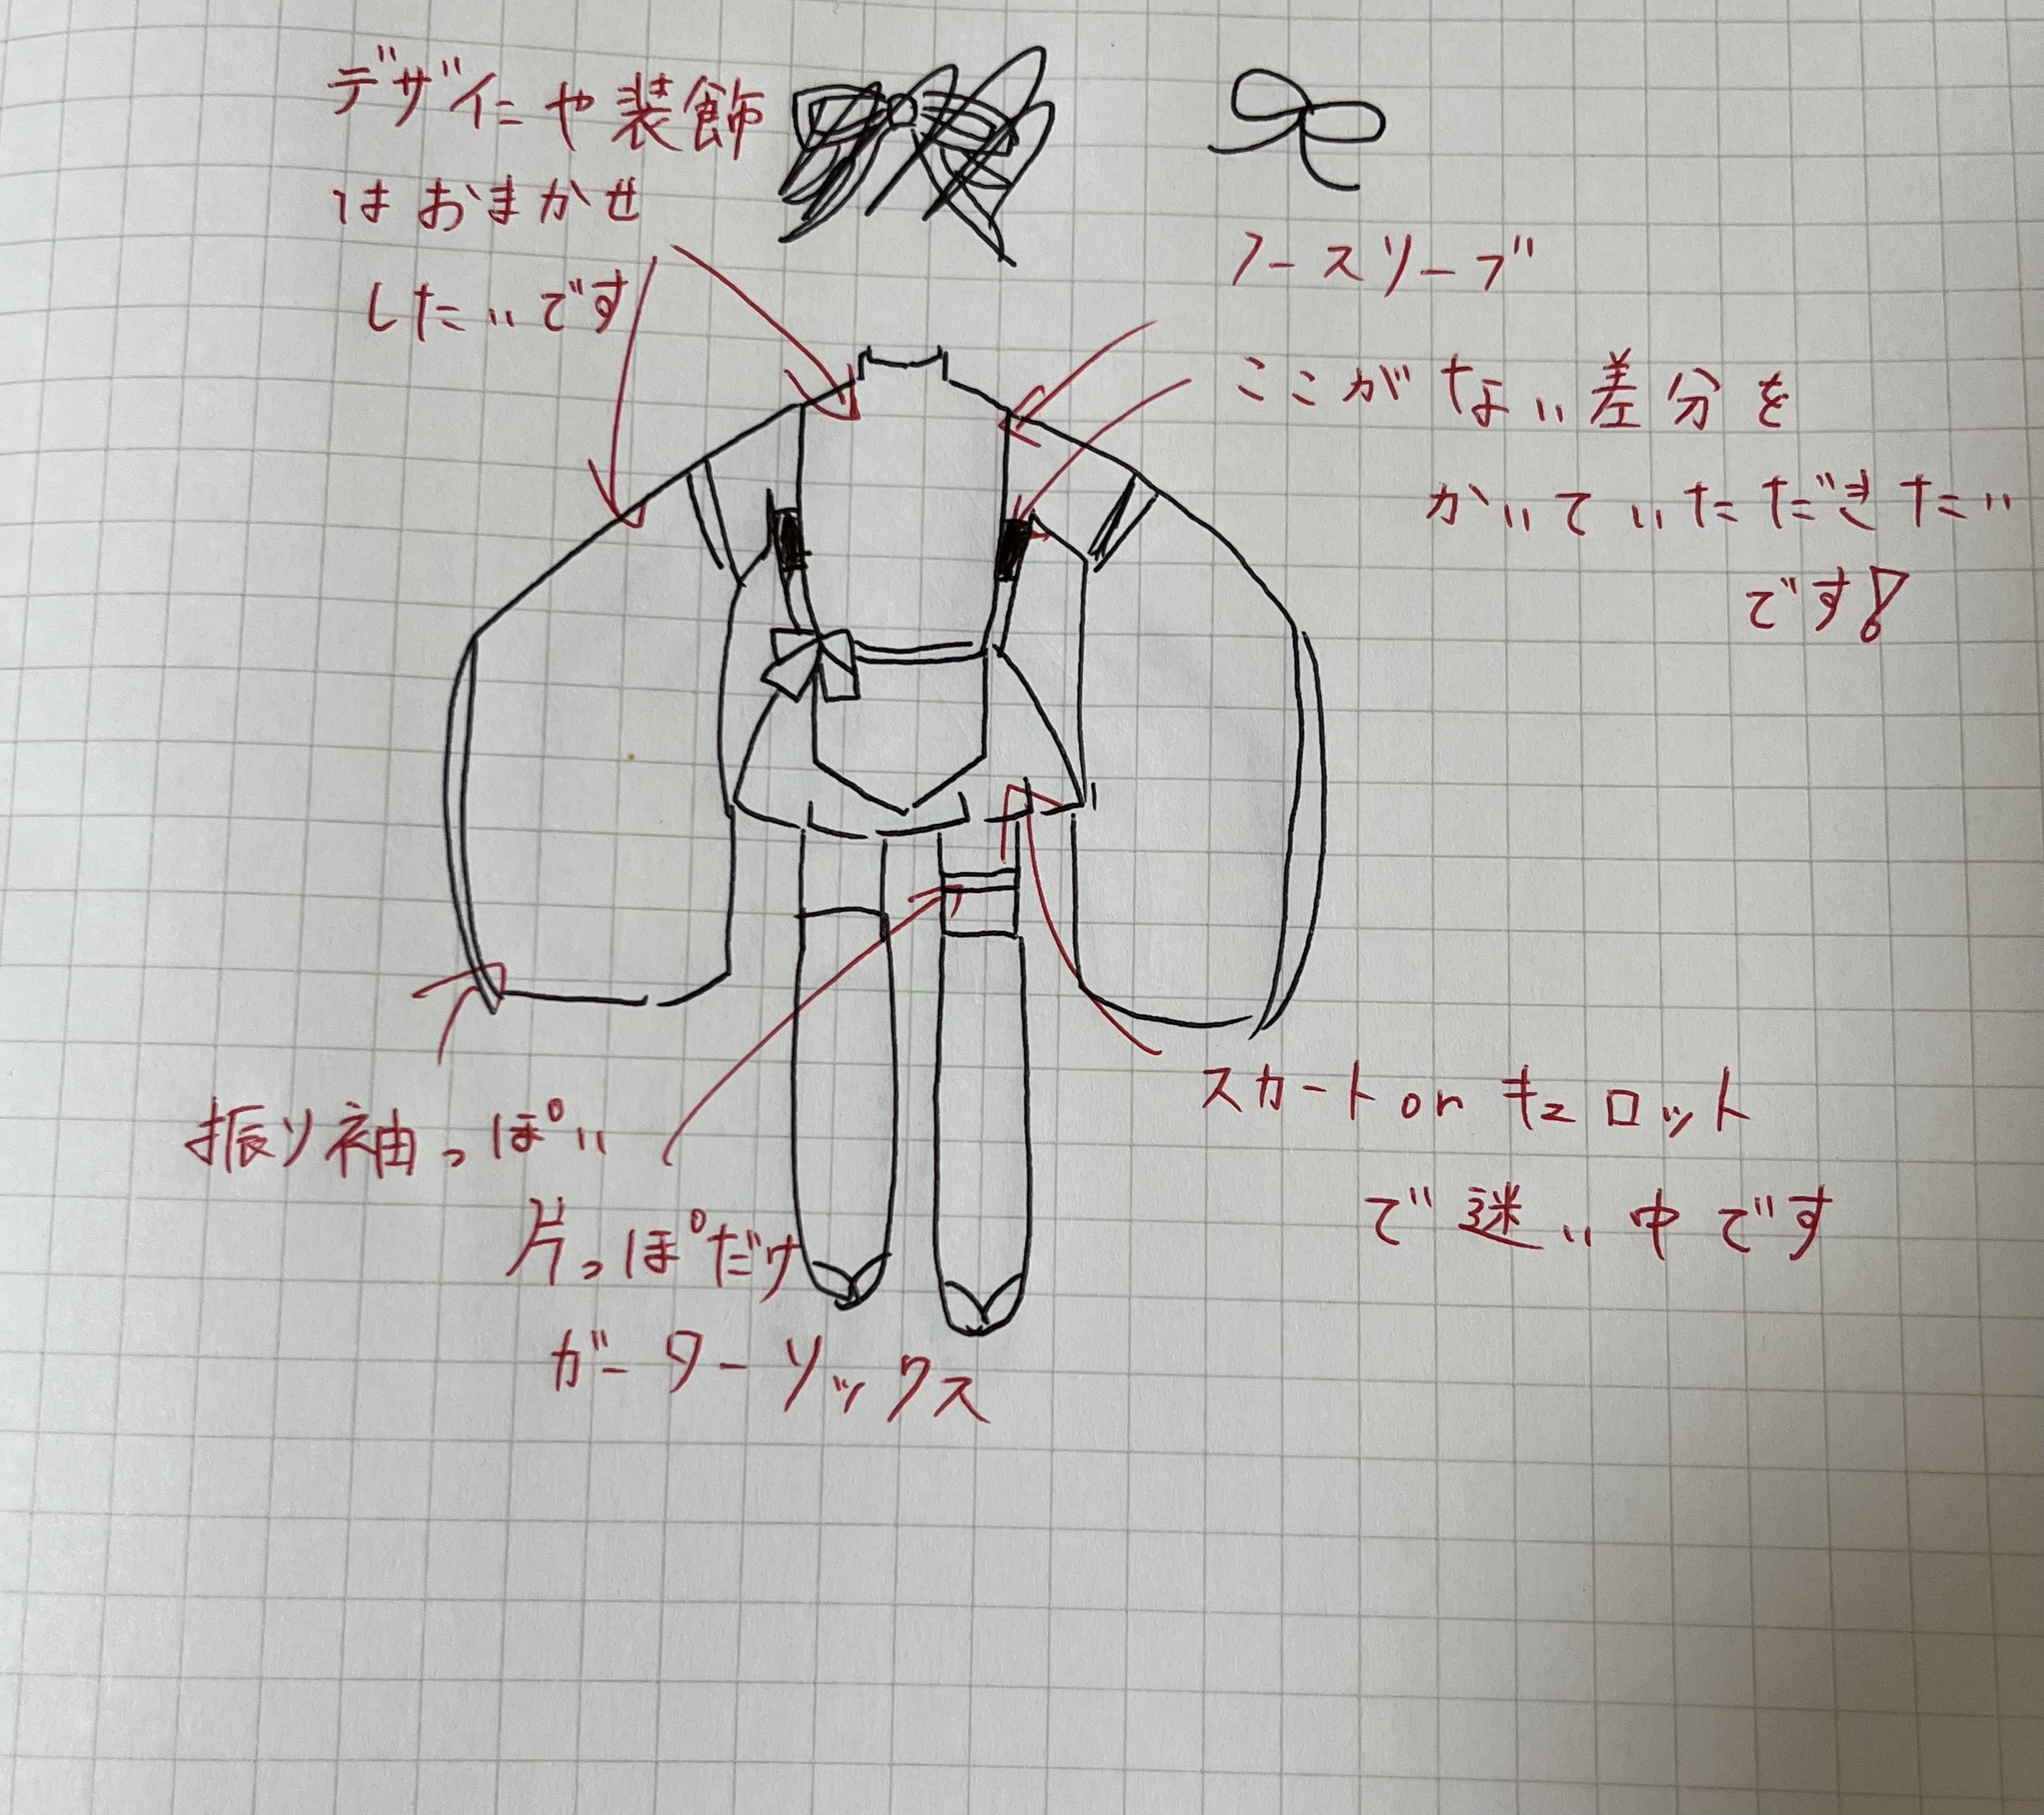 デザインや装飾
はおまかせ
したいです
ノースリーブ
ここがない差分を
かいていただきたい
です!
振り袖っぽい
片っぽだけ
ガーターソックス
スカート or キュロット
で迷い中です